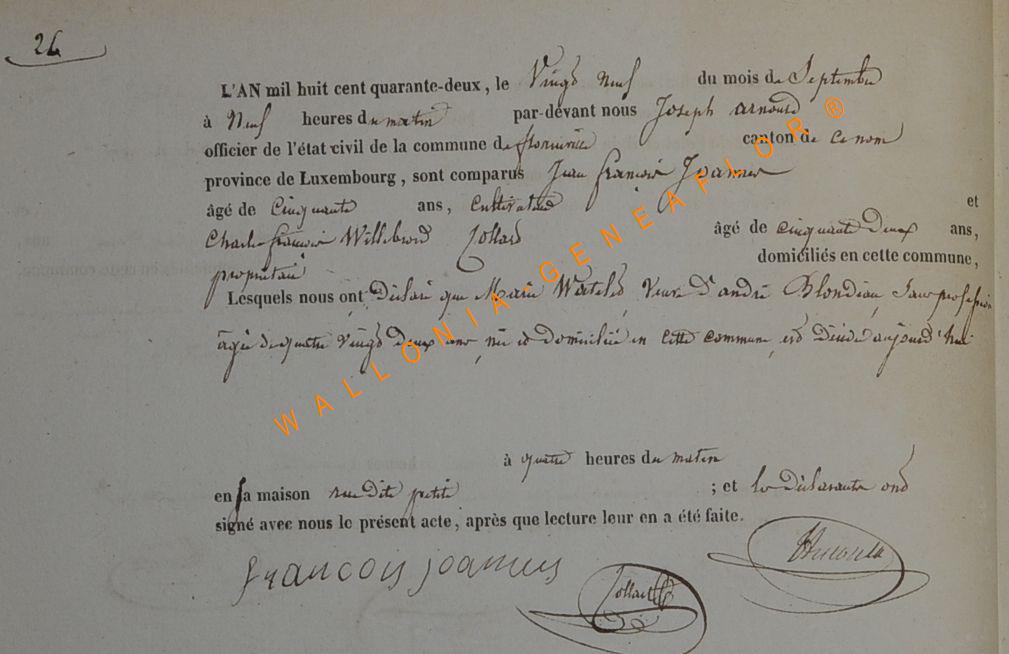 24
L'AN mil huit cent quarante-deux, le Vingt Neuf du mois de Septembre
à Neuf heures du matin par-devant nous Joseph Arnould
officier de l'état civil de la commune de florenville canton de ce nom
province de Luxembourg, sont comparus Jean françois Joannes
âgé de Cinquante ans, Cultivateur et
Charles françois Willebrord Collard âgé de cinquante deux ans,
propriétaire domiciliés en cette commune,
Lesquels nous ont déclaré que Marie Watelet Veuve d'andré Blondiau sans profession
âgée de quatre vingt deux ans, née et domiciliée en cette commune, est décédée aujourd'hui
à quatre heures du matin
en sa maison rue dite petite ; et les déclarants ont
signé avec nous le présent acte, après que lecture leur en a été faite.
françois joannes
Collard
WALLONIA-GENEAFLOR®